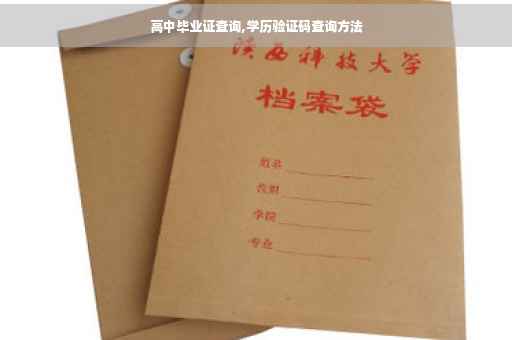 高中毕业证查询,学历验证码查询方法
陕西科技大学
档案袋
学院
专业